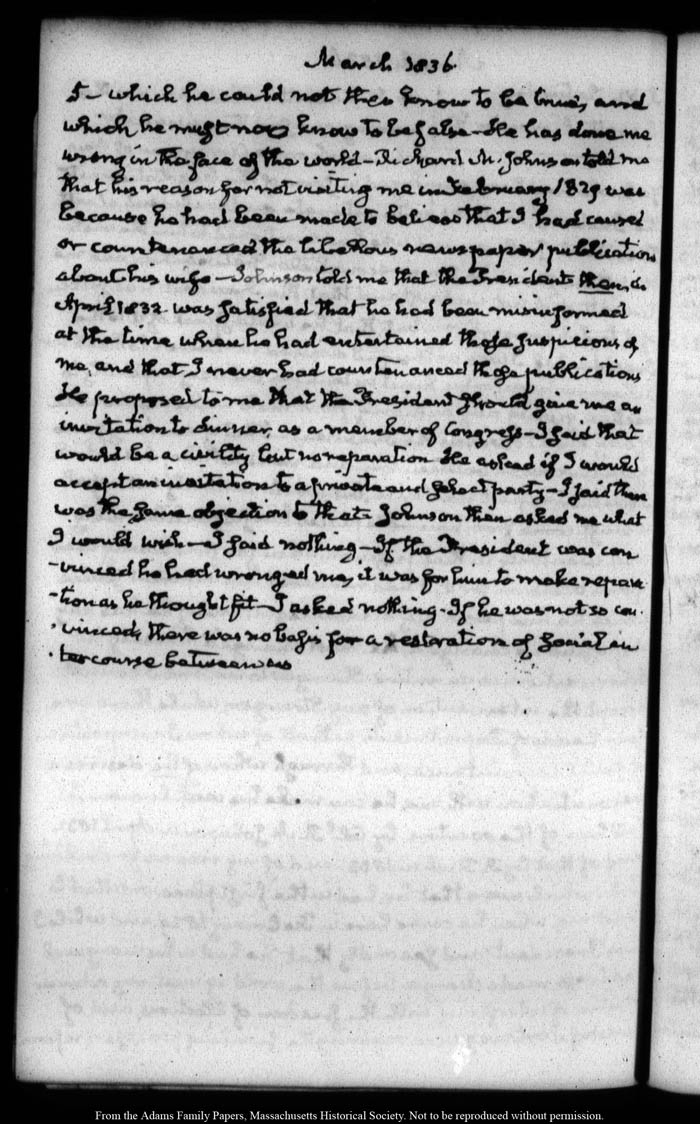 March 1836.
I – which he could not then know to be true, and
which he must now know to be false – He has done me
wrong in the face of the world – Richard M. Johnson told me
that his reason for not visiting me in February 1829 was
because he had been made to believe that I had caused
or countenanced the libellous newspaper publications
about his wife – Johnson told me that the President then, in
April 1832 was satisfied that he had been misinformed
at the time when he had entertained those suspicions of
me, and that I never had countenanced those publications
He proposed to me that the President should give me an
invitation to dinner, as a member of Congress – I said that
would be a civility but no reparation He asked if I would
accept an invitation to a private and select party – I said there
was the same objection to that. Johnson then asked me what
I would wish – I said nothing – If the President was con
-vinced he had wronged me, it was for him to make repara
-tion as he thought fit – I asked nothing – If he was not so con
-vinced, there was no basis for a restoration of social in
-tercourse between us
From the Adams Family Papers, Massachusetts Historical Society. Not to be reproduced without permission.